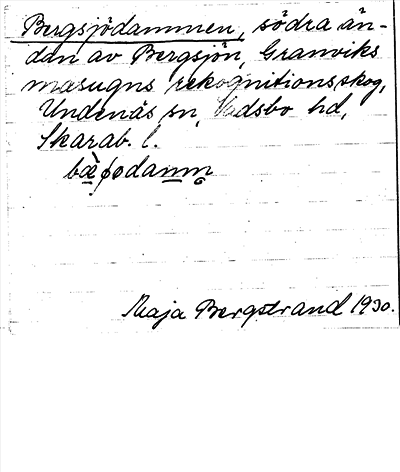 Bergsjödammen, södra än-
dan av Bergsjön, Granviks
masugns rekognitionsskog,
Undenäs sn, Vadsbo hd,
Skarab. l.
Maja Bergstrand 1930.